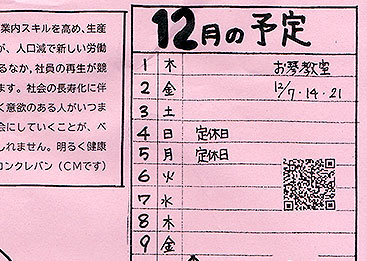 業内スキルを高め、生産
が、人口減で新しい労働
るなか，社員の再生が競
ます。社会の長寿化に伴
く意欲のある人がいつま
会にしていくことが、ベ
しれません。明るく健康
コンクレバン（CMです）
12月の予定
1 木 お琴教室
2 金 12/7・14・21
3 土
4 日 定休日
5 月 定休日
6 火
7 水
8 木
9 金